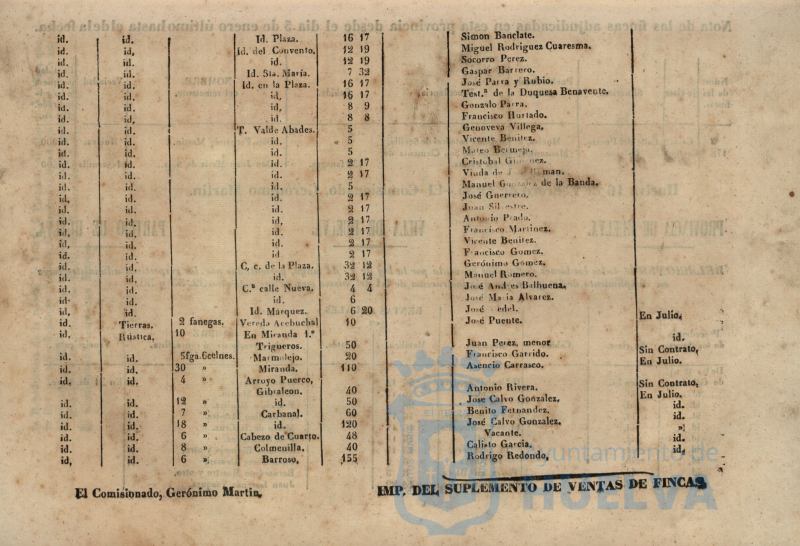 id. id, Id. Plaza. 16 17 Simon Banclate.
id. id. Id. del Convento. 12 19 Miguel Rodriguez Cuaresma.
id. id. id. 12 19 Socorro Perez.
id. id. Id. Sta. María. 7 32 Gaspar Barrero.
id. id. Id. en la Plaza. 16 17 José Parra y Rubio.
id. id. id, 16 17 Test.ª de la Duquesa Benavente.
id. id. id. 8 9 Gonzalo Parra.
id. id, id. 8 8 Francisco Hurtado.
id. id. T. Valde Abades. 5 Genoveva Villega,
id. id. id. 5 Vicente Benitez.
id. id. id. 5 Mateo Bermejo.
id. id. id. 2 17 Cristobal
id. id. id. 2 17 Viuda de
id. id. id. 5 Manuel de la Banda.
id. id. id. 2 17 José Guerrero.
id. id. id. 2 17 Juan Silvestre.
id. id. id. 2 17 Antonio Prado.
id. id. id. 2 17 Francisco Martinez.
id. id. id. 2 17 Vicente Benitez.
id. id. id 2 17 Francisco Gomez.
id. id. C, c. de la Plaza. 32 12 Gerónimo Gómez.
id. id. id. 32 12 Manuel Romero.
id. id. C.ª calle Nueva. 4 4 José Andres Balbuena.
id. id. id. 6 José Maria Alvarez.
id. id. Id. Márquez. 6 20 José
id. Tierras. 2 fanegas. Vereda Acebuchal 10 José Puente. En Julio.
id. Rústica. 10 En Miranda 1.º
Trigueros. 50 Juan Perez, menor id.
id. id. 5fga.6celnes. Marmolejo. 20 Francisco Garrido. Sin Contrato,
id. id. 30 » Miranda. 110 Asencio Carrasco. En Julio.
id. id. 4 » Arroyo Puerco,
Gibraleon. 40 Antonio Rivera. Sin Contrato,
id. id. 12 » id. 50 Jose Calvo Gonzalez. En Julio.
id. id. 7 » Carbanal. 60 Benito Fernandez. id.
id. id. 18 » id. 120 José Calvo Gonzalez. id.
id. id. 6 » Cabezo de Cuarto. 48 Vacante. »
id. id. 8 » Colmenilla. 40 Calisto Garcia. id.
id, id. 6 » Barroso, 155 Rodrigo Redondo, id,
El Comisionado, Gerónimo Martin.
IMP. DEL SUPLEMENTO DE VENTAS DE FINCAS
ayuntamiento de
HUELVA